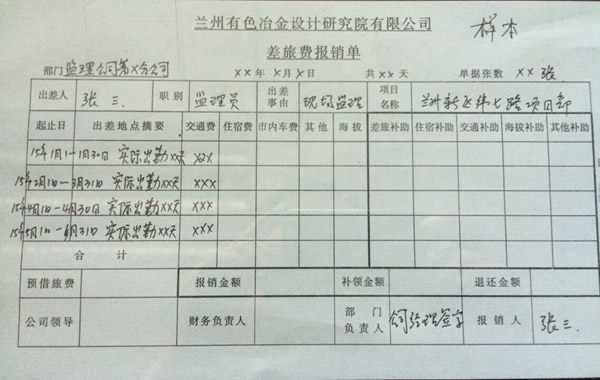 兰州有色冶金设计研究院有限公司 样本
差旅费报销单
部门 监理公司第X分公司 XX年 X月X日 共XX天 单据张数 XX张
出差人 张三 职别 监理员 出差事由 现场监理 项目名称 兰州新区纬七路项目部
起止日 出差地点摘要 交通费 住宿费 市内车费 其他 海拔 差旅补助 住宿补助 交通补助 海拔补助 其他补助
15年1月1—1月30日 实际出勤XX天 XXX
15年2月1日—3月31日 实际出勤XX天 XXX
15年4月1日—4月30日 实际出勤XX天 XXX
15年5月1日—6月31日 实际出勤XX天 XXX
合计
预借旅费 报销金额 补领金额 退还金额
公司领导 财务负责人 部门负责人 经理签字 报销人 张三